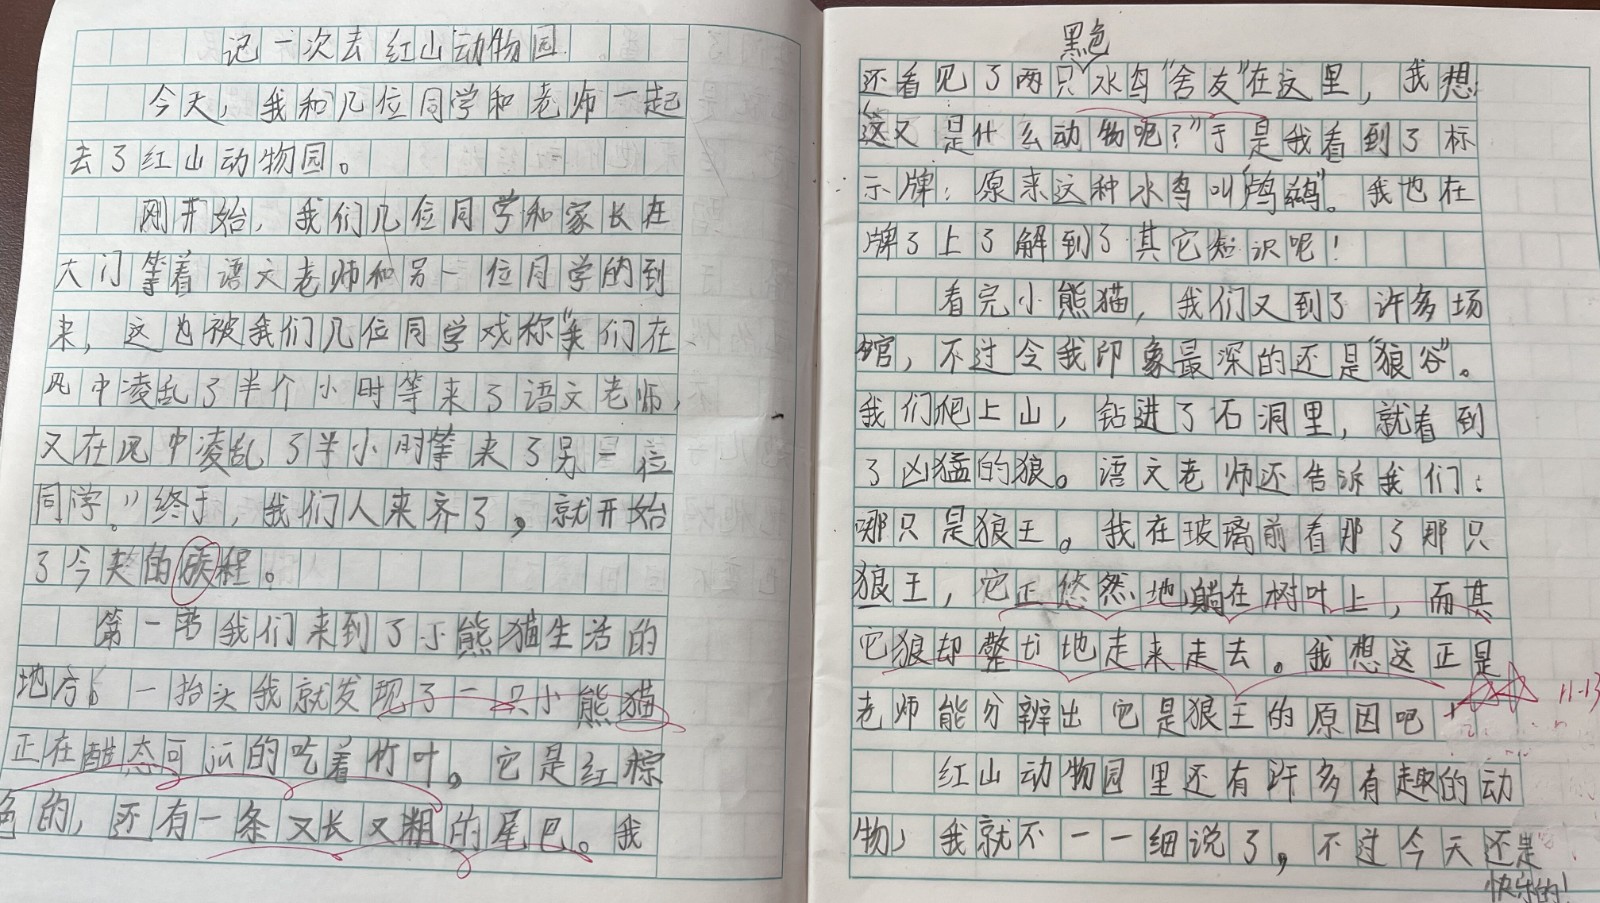 记一次去红山动物园
今天，我和几位同学和老师一起
去了红山动物园。
刚开始，我们几位同学和家长在
大门等着语文老师和另一位同学的到
来，这也被我们几位同学戏称“我们在
风中凌乱了半个小时等来了语文老师，
又在风中凌乱了半小时等来了另一位
同学。”终于，我们人来齐了，就开始
了今天的旅程。
第一站我们来到了小熊猫生活的
地方。一抬头我就发现了一只小熊猫
正在憨态可掬的吃着竹叶。它是红棕
色的，还有一条又长又粗的尾巴。我
黑色
还看见了两只水鸟“舍友”在这里，我想：
“这又是什么动物呢？”于是我看到了标
示牌：原来这种水鸟叫“鸬鹚”。我也在
牌子上了解到了其它知识呢！
看完小熊猫，我们又到了许多场
馆，不过令我印象最深的还是“狼谷”。
我们爬上山，钻进了石洞里，就看到
了凶猛的狼。语文老师还告诉我们：
哪只是狼王。我在玻璃前看那了那只
狼王，它正悠然地躺在树叶上，而其
它狼却警惕地走来走去。我想这正是
老师能分辨出它是狼王的原因吧
11-13
红山动物园里还有许多有趣的动
物，我就不一一细说了，不过今天还是
快乐的！